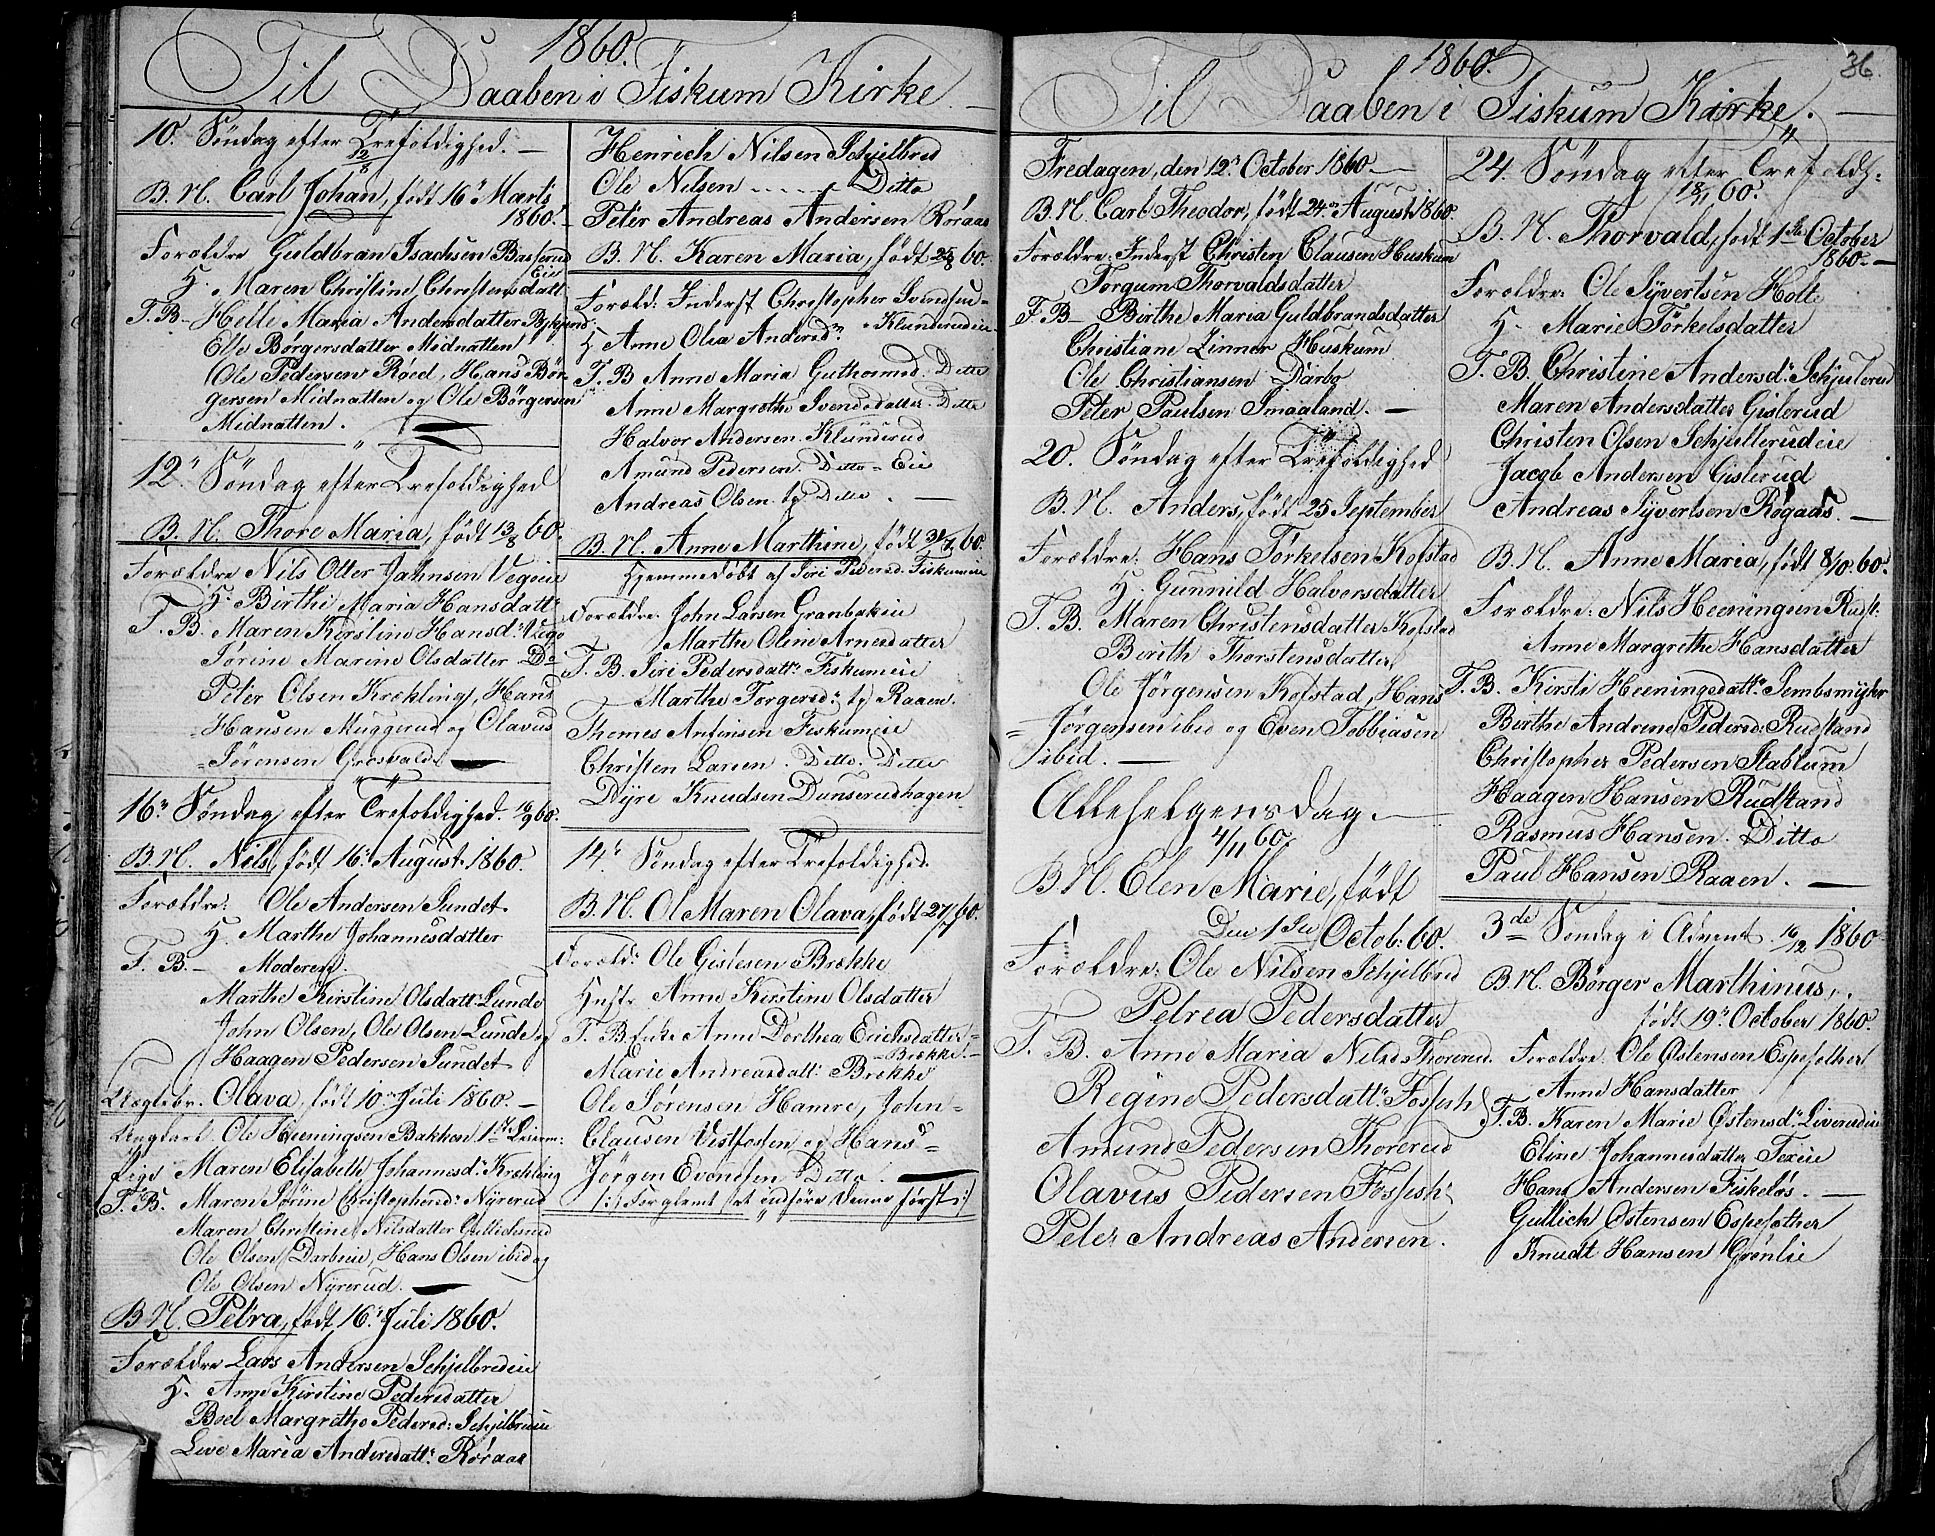 1860.
Til Daaben i Fiskum Kirke.
10. Søndag efter Trefoldighed.
12/8
B. N. Carl Johan, født 16. Marts
1860.
Forældre Guldbran Isachsen Basserud
Eie
H. Maren Christine Christensdatt
F. B. Helle Maria Andersdatter
Elle Børgersdatter Midnatten
Ole Pedersen Røed, Hans Bør-
gersen Midnatten og Ole Børgersen
Midnatten.
12. Søndag efter Trefoldighed
B. N. Thore Maria, født 13/8 60.
Forældre Nils Otter Jahnsen Vegoeie
H. Birthe Maria Hansdatt:
F. B. Maren Kirstine Hansd: Vego
Sørine Marine Olsdatter Do
Peter Olsen Krækling, Hans
Hansen Muggerud og Olavus
Sørensen Grosvold.
16. Søndag efter Trefoldighed. 16/9 60.
B. N. Nils, født 16. August 1860.
Forældre: Ole Andersen Sundet
H. Marthe Johannesdatter
F. B. Moderen.
Marthe Kirstine Olsdatt: Lunde
John Olsen, Ole Olsen Lunde og
Haagen Pedersen Sundet
Uægtebr. Olava, født 10. Juli 1860.
Ungkarl Ole Heeningsen Bakken 1ste Leierm:
Pige Maren Elisabeth Johannesd: Krækling
F. B. Maren Sørine Christophersd: Nyrerud
Maren Christine Nilsdatter Gullichsrud
Ole Olsen Darboeie, Hans Olsen ibid og
Ole Olsen Nyrerud.
B. N. Petra, født 16. Juli 1860.
Forældre Lars Andersen Schjelbredeie
H. Anne Kirstine Pedersdatter
Boel Margrethe Pedersd: Schjelbredeie
Live Maria Andersdatt: Røraas
Henrich Nilsen Schjelbred
Ole Nilsen Ditto
Peter Andreas Andersen Røraas
B. N. Karen Maria, født 25/8 60.
Foræld: Inderst Christopher Svendsen
Klunderudeie
H Anne Olea Andersd:
F. B Anne Maria Guthormsd. Ditto
Anne Margrethe Svendsdatter. Ditto
Halvor Andersen Klunderud
Amund Pedersen. Ditto Eie
Andreas Olsen Ditto.
B. N. Anne Marthine, født 31/7 60.
Hjemmedøbt af Siri Pedersd: Fiskumeie
Forældre: John Larsen Granbakeie
Marthe Oline Arnesdatter
F. B. Siri Pedersdatt: Fiskumeie
Marthe Torgersd: Raaen.
Thomes Anfinsen Fiskumeie
Christen Larsen. Ditto. Ditto
Dyre Knudsen Dunserudhagen
14. Søndag efter Trefoldighed.
B. N. Ole Maren Olava, født 27/7 60.
Foræld: Ole Gislesen Brække
Hustr. Anne Kirstine Olsdatter
F. B. Enke Anne Dorthea Erichsdatter
Brække.
Marie Andreasdatt: Brække
Ole Sørensen Hamre, John
Clausen Vestfossen og Hans
Jørgen Evensen Ditto.
/:Forglemt at indføre denne først:/
1860.
36.
Til Daaben i Fiskum Kirke.
Fredagen, den 12. October 1860
B. N. Carl Theodor, født 24. August 1860.
Forældre: Inderst Christen Clausen Huskum
Torgum Thorvaldsdatter
F. B Birthe Maria Guldbrandsdatter
Christiane Linner Huskum
Ole Christiansen Darbo
Peter Paulsen Smaaland.
20. Søndag efter Trefoldighed
B. N. Anders, født 25 September
Forældre: Hans Tørkelsen Kofstad
H. Gunnild Halvorsdatter
F. B. Maren Christensdatter Kofstad
Berith Thorstensdatter
Ole Jørgensen Kofstad, Hans
Jørgensen ibid og Even Tobbiasen
ibid.
Allehelgensdag.
4/11 60.
B N. Elen Marie, født
Den 1ste Octob: 60.
Forældre: Ole Nilsen Schjelbred
Petrea Pedersdatter
F. B. Anne Maria Nilsd Thorerud
Regine Pedersdatt: Fossesh
Amund Pedersen Thorerud
Olavus Pedersen Fossesh
Peter Andreas Andersen.
24. Søndag efter Trefoldh:
18/11 60.
B. N. Thorvald, født 1ste October
1860.
Forældre: Ole Syvertsen Holte
H. Marie Tørkelsdatter
F. B. Christine Andersd: Schjulerud
Maren Andersdatter Gislerud
Christen Olsen Schjullerudeie
Jacob Andersen Gislerud
Andreas Syvertsen Røgaas.
B. N. Anne Maria, født 8/10. 60.
Forældre: Nils Heeningsen Rust.
Anne Margrethe Hansdatter
F. B. Kirsti Heeningsdatt: Sembsmyhr
Birthe Andrene Pedersd: Rudstand
Christopher Pedersen Stablum
Haagen Hansen Rudstand
Rasmus Hansen. Ditto
Paul Hansen Raaen.
3de Søndag i Advent 16/12 1860
B. N. Børger Marthinus,
født 19. October 1860.
Forældre. Ole Østensen Espesether
Anne Hansdatter
F. B. Karen Marie Østensd: Liverudeie
Eline Johannesdatter Texeie
Hans Andersen Fiskeløs.
Gullich Østensen Espesether
Knudt Hansen Grønlie